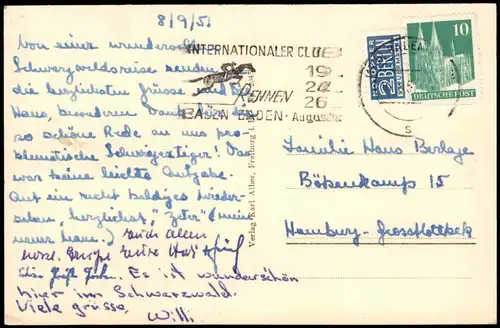 8/9/51
Von einer wundervollen
Schwarzwaldreise senden
die herzlichsten Grüsse
Haus, besonderen Dank für die
so schöne Rede an uns pro-
blematische Schwiegertiger! Das
war keine leichte Aufgabe.
Auf ein recht baldiges Wieder-
sehen, herzlichst, "Peter" (mein
neuer Name.) Euch allen
herzl. Grüsse
Es ist wunderschön
hier im Schwarzwald.
Viele grüsse,
Willi
INTERNATIONALER CLUB
RENNEN
19
24
26
BADEN-BADEN · August
NOTOPFER
2 BERLIN
STEUERMARKE
10
DEUTSCHE POST
Verlag: Karl Alber, Freiburg i.
Familie Hans Berlage
Bösenkamp 15
Hamburg-Grossflottbek